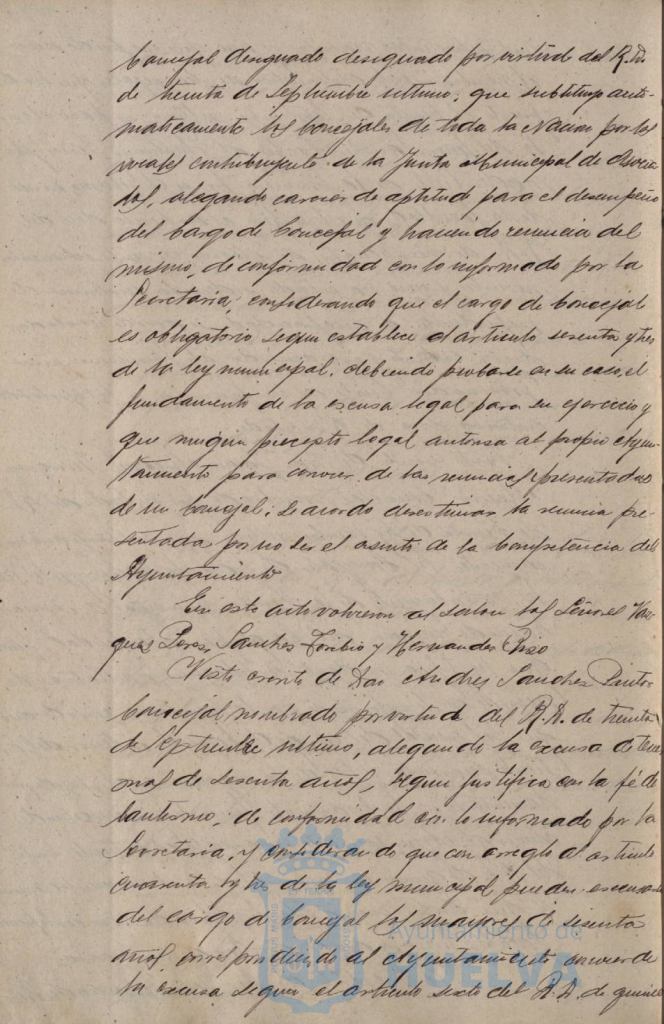 Concejal designado designado por virtud del R. D.
de treinta de Septiembre ultimo, que substituyo auto-
maticamente los Concejales de toda la Nacion por los
vocales contribuyente de la Junta Municipal de Asocia
dos, alegando carecer de aptitud para el desempeño
del cargo de Concejal y haciendo renuncia del
mismo, de conformidad con lo informado por la
Secretaria; considerando que el cargo de concejal
es obligatorio segun establece el articulo sesenta y tres
de la ley municipal, debiendo probarse en su caso, el
fundamento de la escusa legal para su ejercicio y
que ningun precepto legal autorisa al propio Ayun-
tamiento para conocer de las renuncias presentadas
de un concejal; se acordo desestimar la renuncia pre-
sentada por no ser el asunto de la Competencia del
Ayuntamiento
En este acto volvieron al salon los Señores Vas
ques Peres, Sanches Toribio y Hernandes Piso
Visto escrito de Don Andres Sanches
Concejal nombrado por virtud del R. D. de treinta
de Septiembre ultimo, alegando la excusa de tener
mas de sesenta años, segun justifica con la fé de
bautismo; de conformidad con lo informado por la
Secretaria, y considerando que con arreglo al articulo
cuarenta y tres de la ley municipal pueden escusarse
del cargo de Concejal los mayores de sesenta
años, correspondiendo al Ayuntamiento conocer de
la excusa segun el articulo sexto del R. D. de quince
Ayuntamiento de
HUELVA